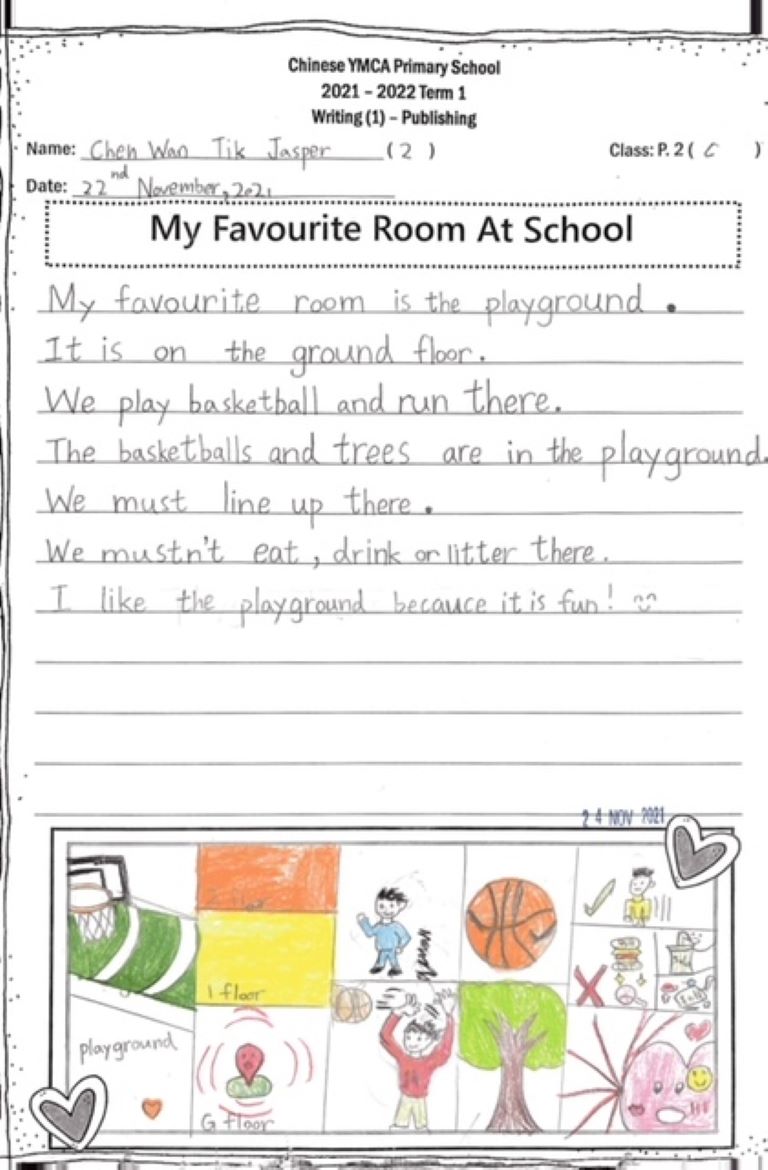 Chinese YMCA Primary School
2021 – 2022 Term 1
Writing (1) – Publishing
Name: Chen Wan Tik Jasper (2) Class: P. 2 ( C )
Date: 22nd November, 2021
My Favourite Room At School
My favourite room is the playground.
It is on the ground floor.
We play basketball and run there.
The basketballs and trees are in the playground.
We must line up there.
We mustn't eat, drink or litter there.
I like the playground becauce it is fun!
24 NOV 2021
2 floor
1 floor
playground
G floor